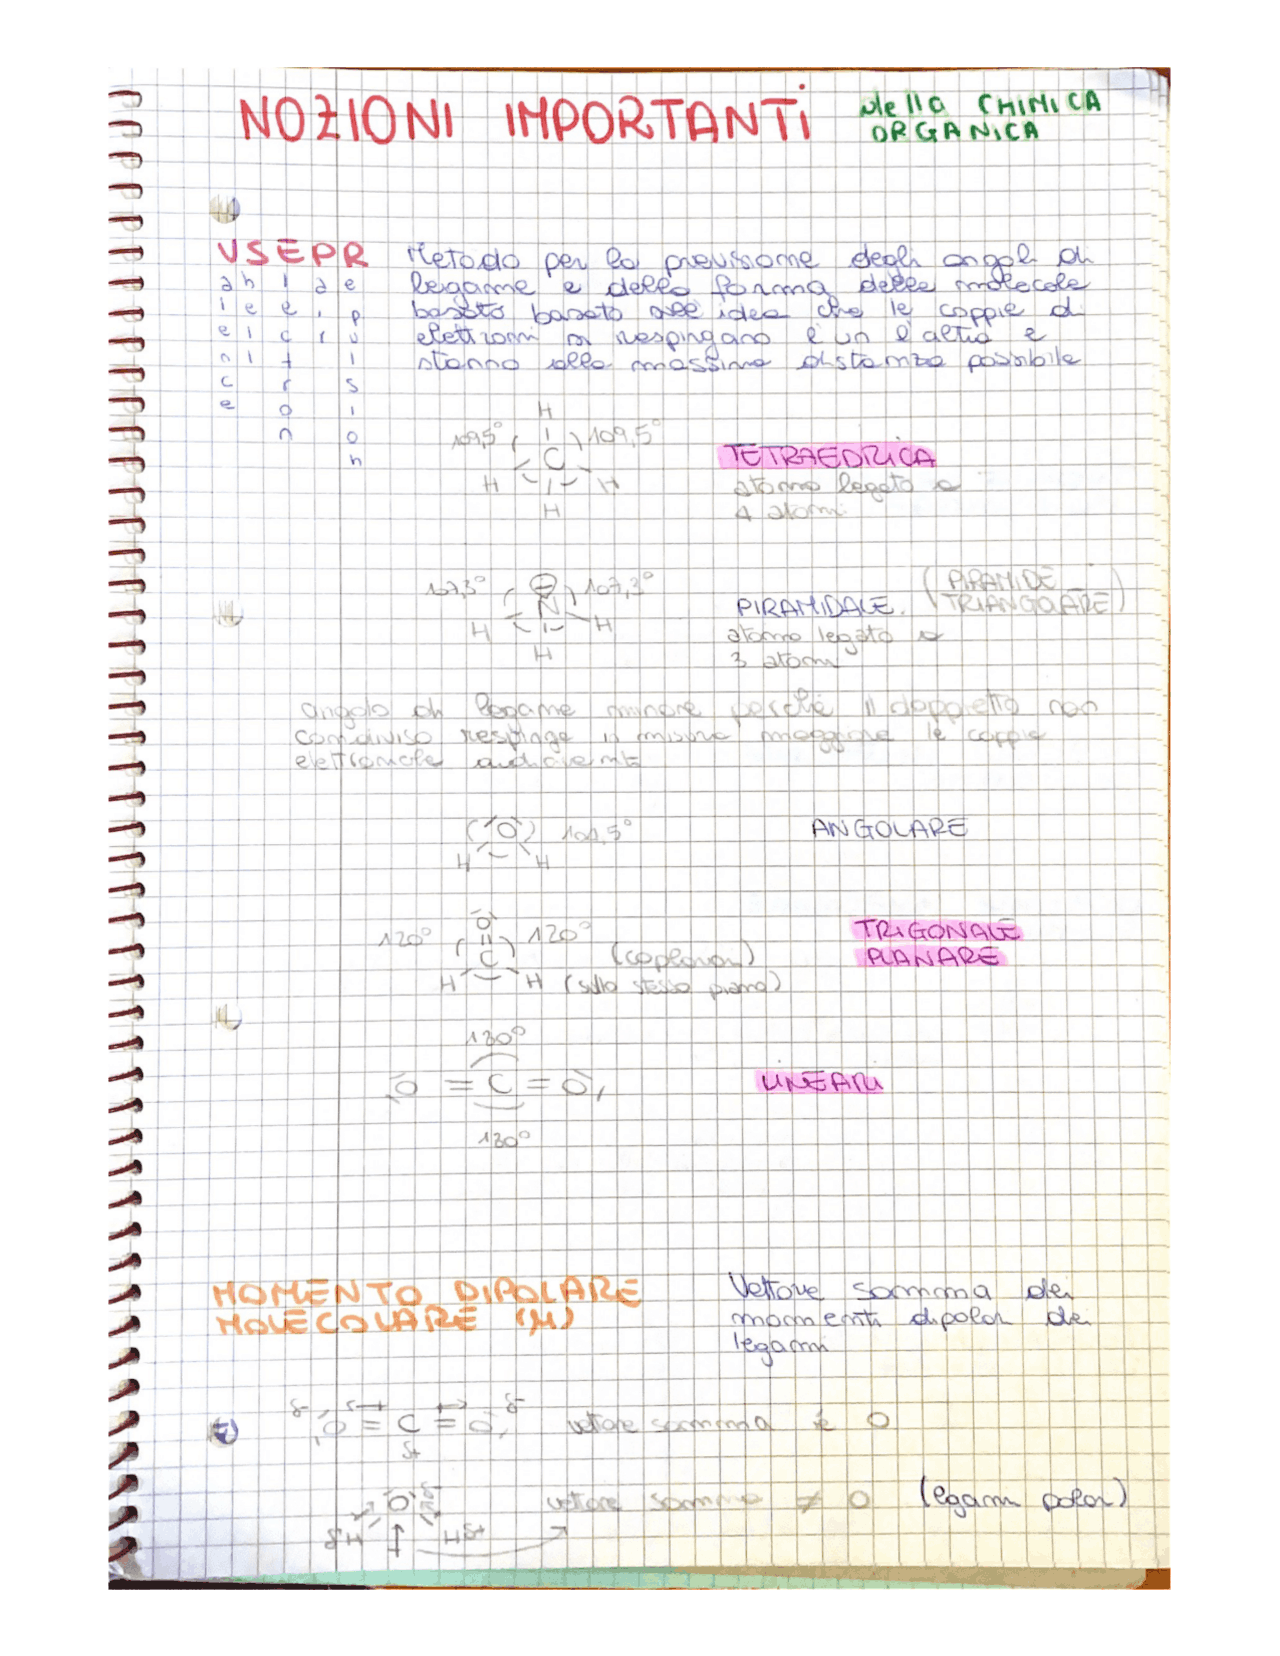 NOZIONI IMPORTANTi della CHIMICA
ORGANICA
VSEPR Metodo per la previsione degli angoli di
legame e della forma delle molecole
basato basato all'idea che le coppie di
elettroni si respingano l'un l'altra e
stanno alla massima distanza possibile
valence
shell
electron
pair
repulsion
H
109,5° 109,5°
C
H H
H
TETRAEDRICA
atomo legato a
4 atomi
107,3° 107,3°
N
H H
H
PIRAMIDALE (PIRAMIDE
TRIANGOLARE)
atomo legato a
3 atomi
angolo di legame minore perché il doppietto non
condiviso respinge in misura maggiore le coppie
elettroniche
O 104,5° ANGOLARE
H H
O
120° 120°
C (coplanari)
H H (sullo stesso piano)
TRIGONALE
PLANARE
180°
O = C = O
180°
LINEARI
MOMENTO DIPOLARE
MOLECOLARE (μ)
Vettore somma dei
momenti dipolari dei
legami
δ- O = C = O δ- vettore somma è 0
δ+
O δ- vettore somma ≠ 0 (legami polari)
δ+H Hδ+